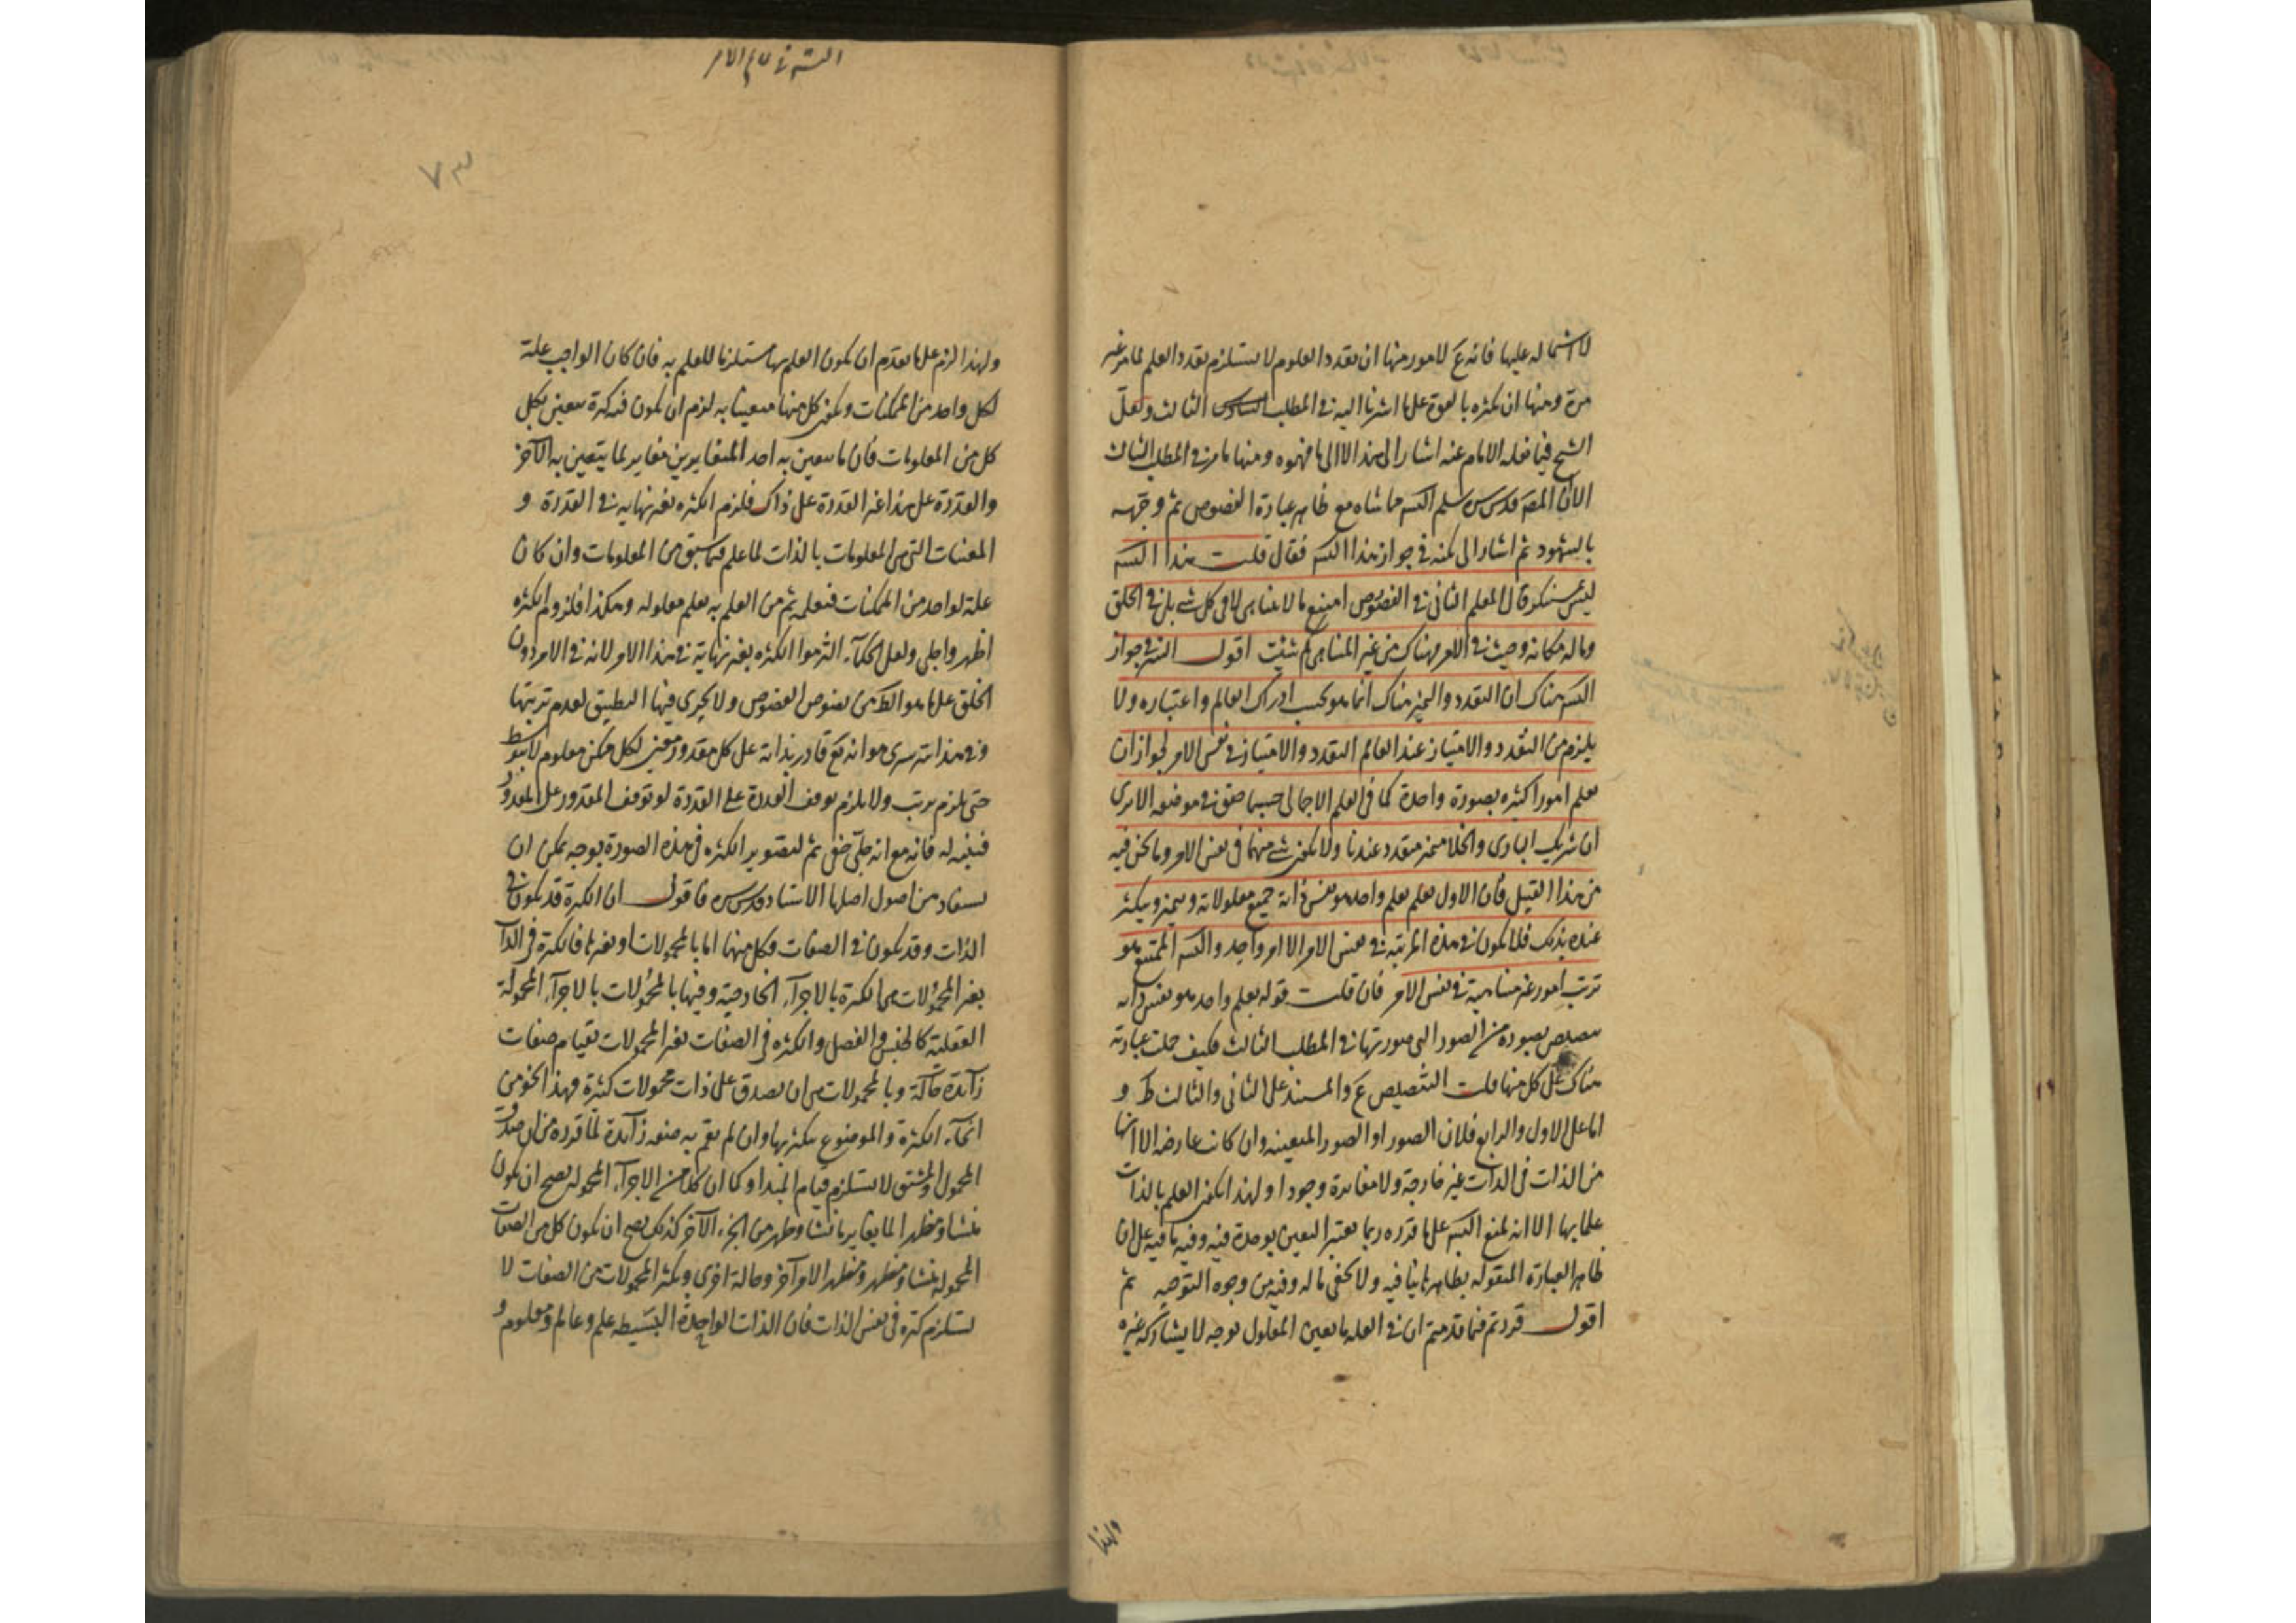 لاشتماله عليها فانه ع لامور منها ان تعدد المعلوم لا يستلزم تعدد العلم لما مر غير
مرة ومنها ان تكثره بالقوة على ما اشرنا اليه في المطلب الثالث ولعل
الشيخ فيما نقله الامام عنه اشار الى هذا لا الى ما فهموه ومنها ما مر في المطلب الثالث
الا ان المص قدس سره سلم مع ظاهر عبارة الفصوص ثم وجهه
بالشهود ثم اشار الى نكتة في جواز هذا فقال قلت هذا
ليس بمستنكر قال المعلم الثاني في الفصوص امتنع ما لا يتناهى لا في كل شيء بل في الخلق
وما له مكانة وجب في الامر فهناك من غير المتناهي كم شئت اقول السر في جواز
هناك ان التعدد والتميز هناك انما هو بحسب ادراك العالم واعتباره ولا
يلزم من التعدد والامتياز عند العالم التعدد والامتياز في نفس الامر لجواز ان
يعلم امورا كثيرة بصورة واحدة كما في العلم الاجمالي حسبما حقق في موضعه الا يرى
ان شريك الباري والخلا متميز متعدد عندنا ولا يكون شيء منهما في نفس الامر وما نحن فيه
من هذا القبيل فان الاول يعلم بعلم واحد هو نفس ذاته جميع معلولاته ويتميز ويتكثر
عنده بذلك فلا يكون في هذه المرتبة في نفس الامر الا امر واحد الممتنع هو
ترتب امور غير متناهية في نفس الامر فان قلت قوله بعلم واحد هو نفس ذاته
تنصيص بصورة من الصور التي صورتها في المطلب الثالث فكيف حملت عبارته
هناك على كل منها قلت التنصيص ع والمستند على الثاني والثالث ظ و
اما على الاول والرابع فلان الصور او الصور المتعينة وان كانت عارضة الا انها
من الذات في الذات غير خارجة ولا مغايرة وجودا ولهذا يكون العلم بالذات
علما بها الا انه لمنع على ما قرره ربما يعتبر التعين بوحدة فيه وفيه ما فيه على ان
ظاهر العبارة المنقولة بظاهرها ينافيه ولا يخفى ما له وفيه من وجوه التوجيه ثم
اقول قررتم فيما قدمتم ان في العلة ما يعين المعلول بوجه لا يشاركه غيره
ولهذا
٧٣
ولهذا لزم على ما تقدم ان يكون العلم بها مستلزما للعلم به فان كان الواجب علة
لكل واحد من الممكنات ويكون كل منها متعينا به لزم ان يكون فيه كثرة بتعين بكل
كل من المعلومات فان ما يتعين به احد المتغايرين مغاير لما يتعين به الآخر
والقدرة على هذا غير القدرة على ذاك فلزم الكثرة بغير نهاية في القدرة و
المعينات التي هي المعلومات بالذات لما علم فيما سبق من المعلومات وان كان
علة لواحد من الممكنات فبعلمه ثم من العلم به يعلم معلوله وهكذا فلزوم الكثرة
اظهر واجلى ولعل الحكماء التزموا الكثرة بغير نهاية في هذا الامر لانه في الامر دون
الخلق على ما هو الظ من نصوص الفصوص ولا يجري فيها التطبيق لعدم ترتبها
وفي هذا سر سرى هو انه تع قادر بذاته على كل مقدور معين لكل ممكن معلوم لا بتوسط
حتى يلزم ترتب ولا يلزم توقف القدرة على القدرة لو توقف المقدور على المقدور
فتنبه له فانه مع انه جلي خفي ثم لتصوير الكثرة في هذه الصورة بوجه يمكن ان
يستفاد من اصول اصلها الاستاد قدس سره فاقول ان الكثرة قد يكون في
الذات وقد يكون في الصفات وكل منها اما بالمحمولات او بغيرها فالكثرة في الذات
بغير المحمولات هي الكثرة بالاجزاء الخارجية وفيها بالمحمولات بالاجزاء المحمولة
العقلية كالجنس والفصل والكثرة في الصفات بغير المحمولات بقيام صفات
زائدة حالة وبالمحمولات هي ان يصدق على ذات محمولات كثيرة فهذا النحو من
انحاء الكثرة والموضوع يتكثر بها وان لم يقم به صفة زائدة لما قرره من ان صدق
المحمول والمشتق لا يستلزم قيام المبدا وكما ان كلا من الاجزاء المحمولة يصح ان يكون
منشا ومظهرا لما يغاير ما نشا وظهر من الجزء الآخر كذلك يصح ان يكون كل من الصفات
المحمولة منشا ومظهرا لامر آخر وحالة اخرى وتكثر المحمولات من الصفات لا
يستلزم كثرة في نفس الذات فان الذات الواحدة البسيطة علم وعالم ومعلوم و